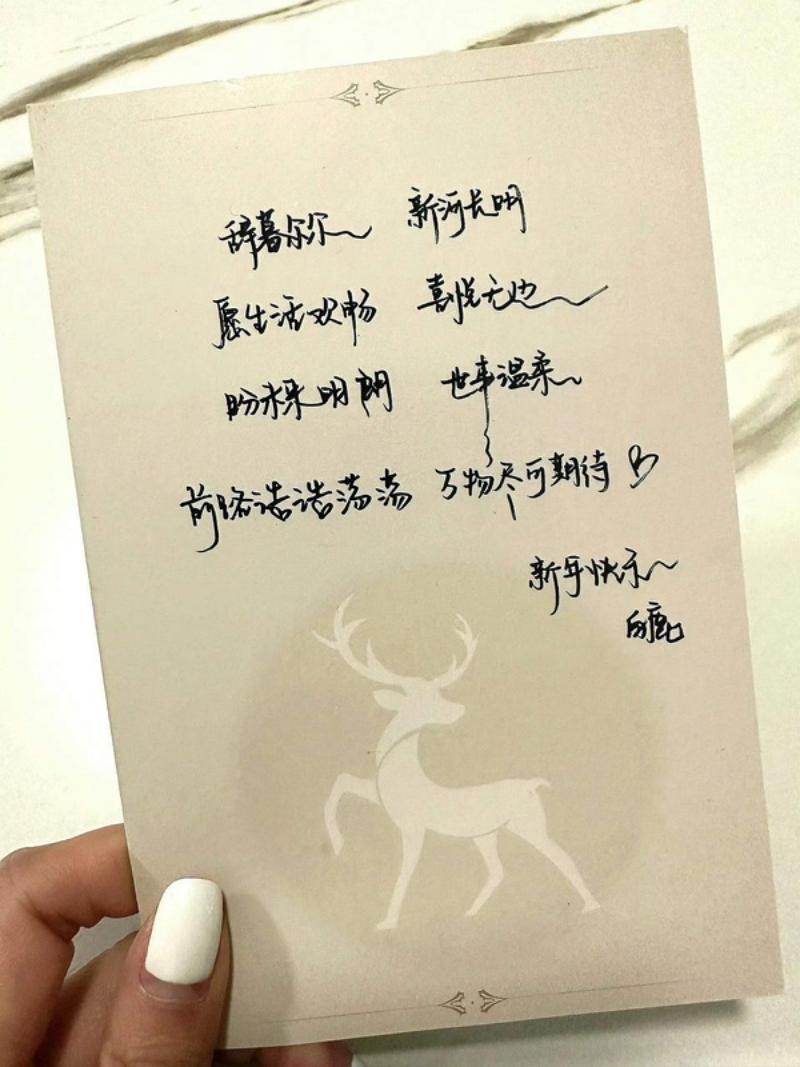 辞暮尔尔～ 新河长明
愿生活欢畅 喜悦无边
盼未来明朗 世事温柔
前路浩浩荡荡 万物尽可期待
新年快乐～
白鹿